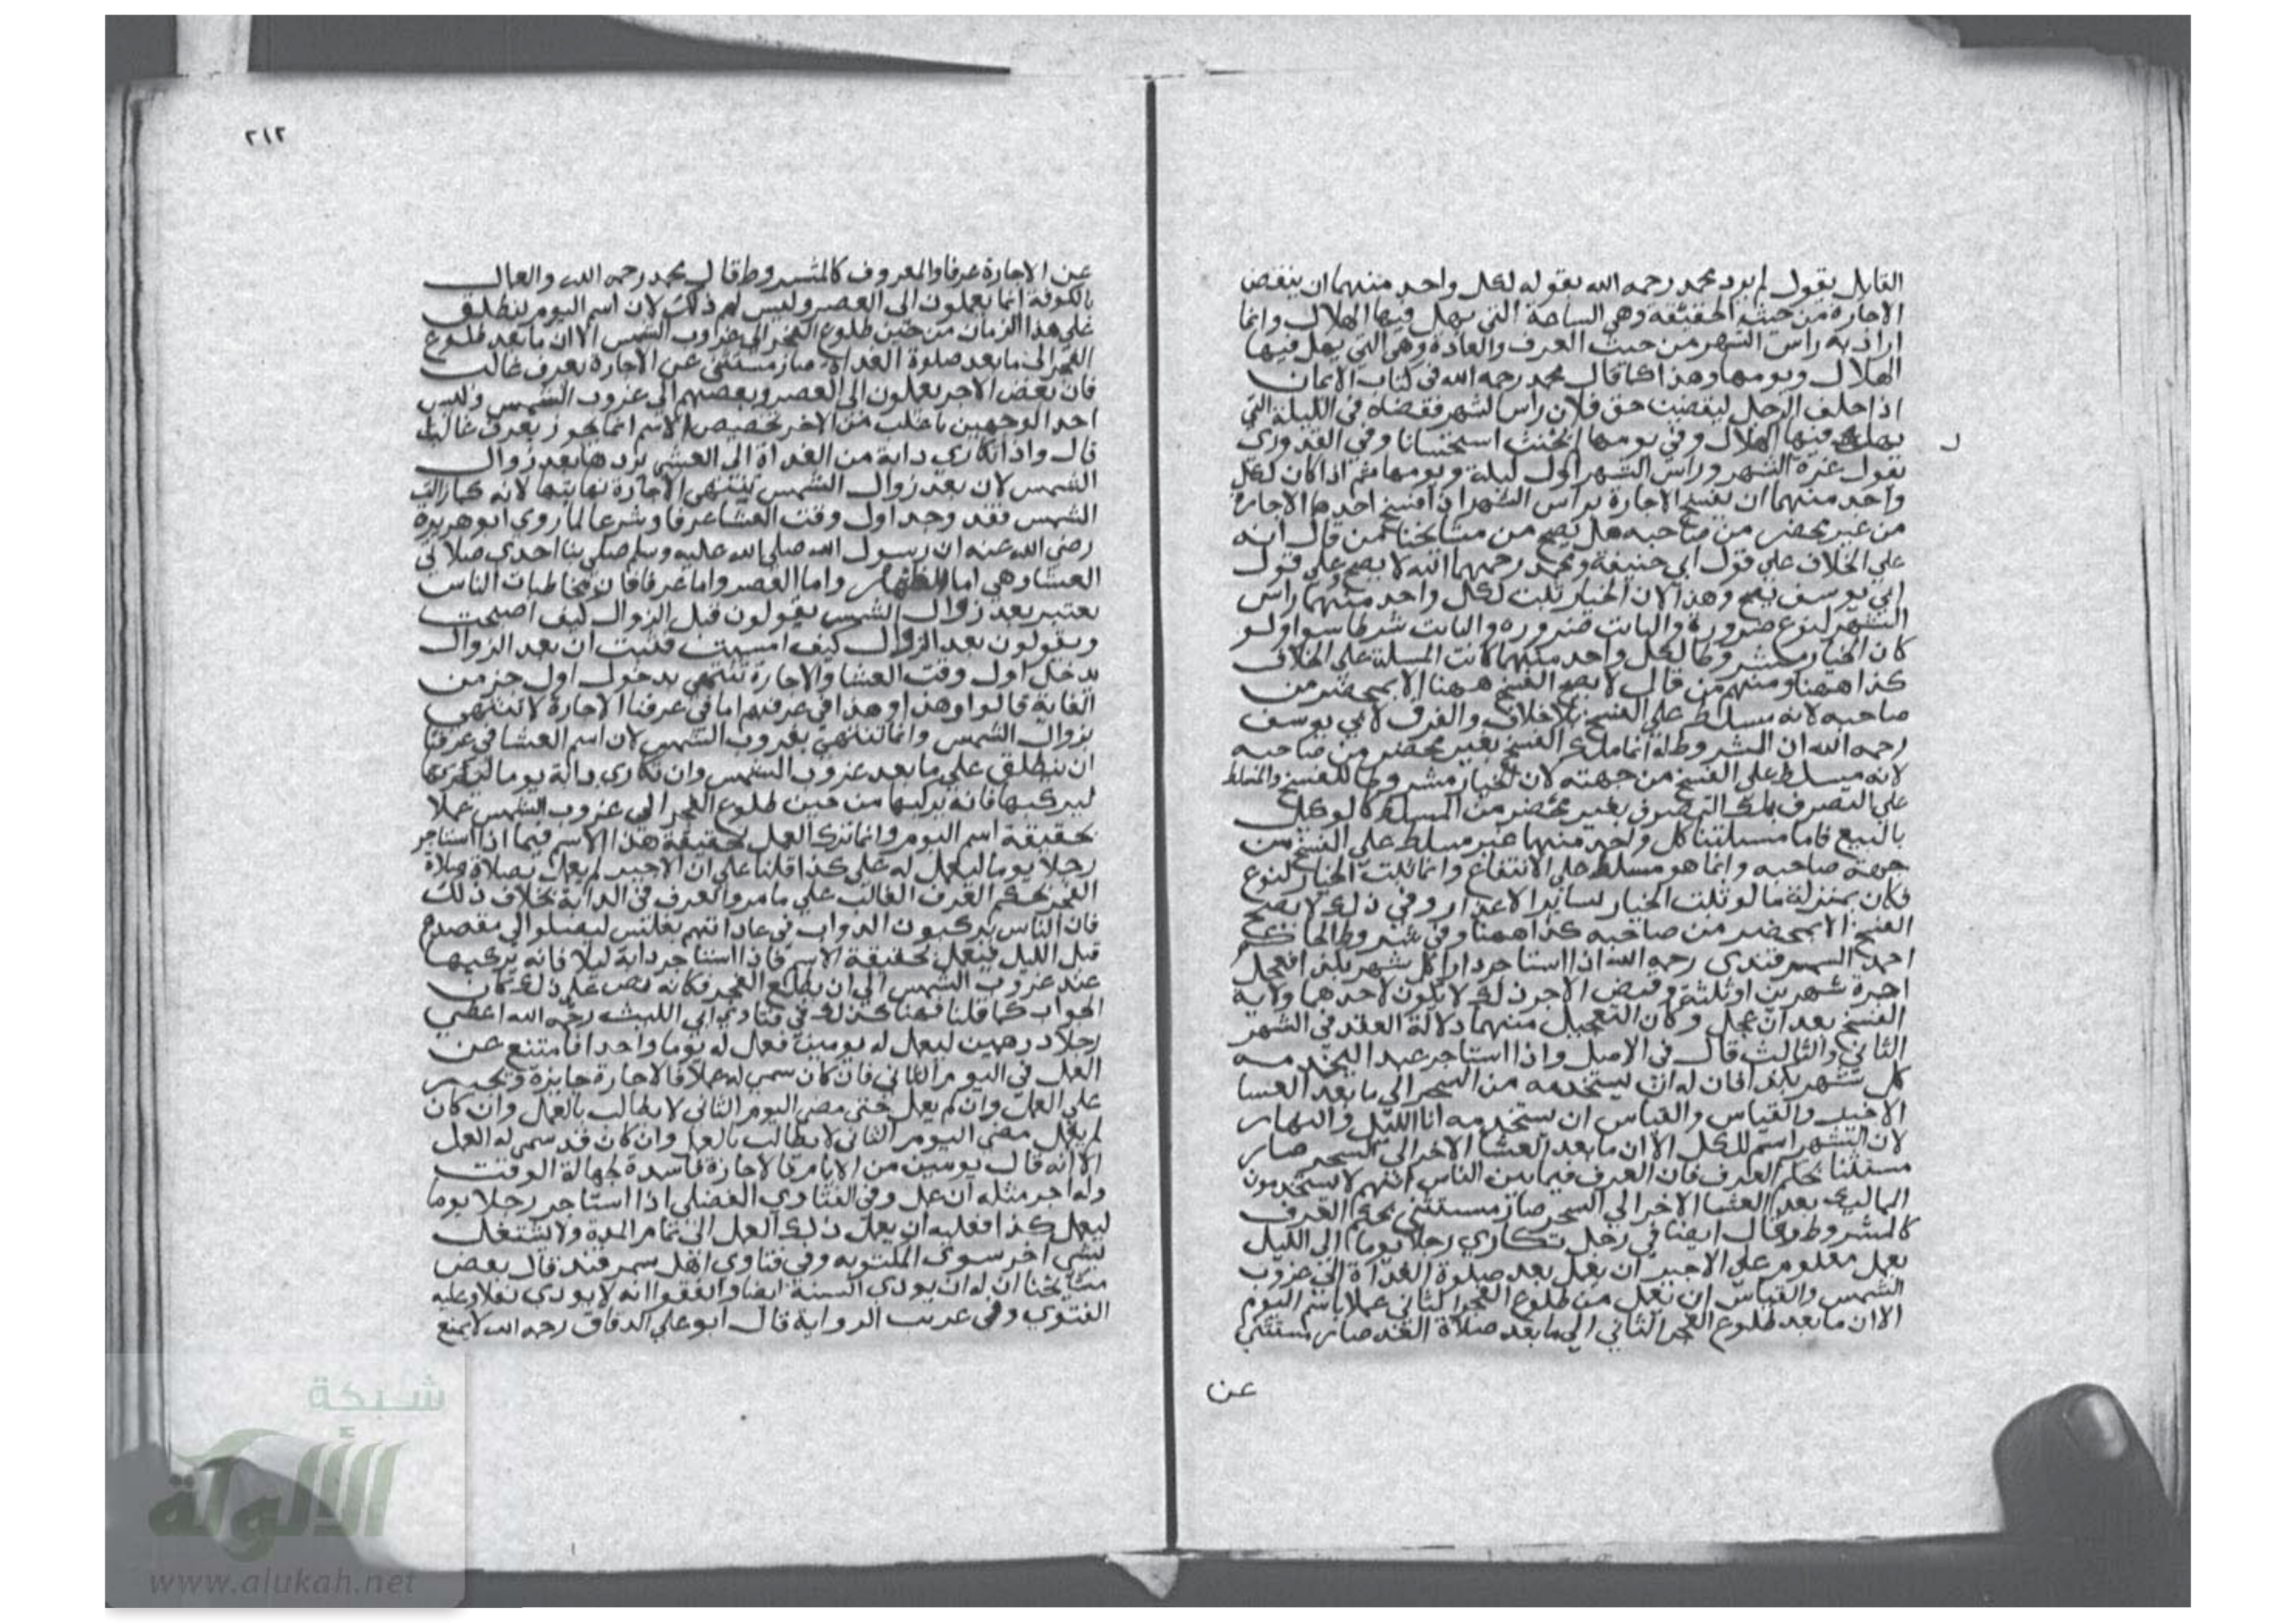 القايل يقول لم يرد محمد رحمه الله بقوله لكل واحد منهما ان ينقض
الاجارة من حيث الحقيقة وهي الساعة التي يهل فيها الهلال وانما
اراد به راس الشهر من حيث العرف والعادة وهي التي يهل فيها
الهلال ويومها وهذا كما قال محمد رحمه الله في كتاب الايمان
اذا حلف الرجل ليقضين حق فلان راس الشهر فقضاه في الليلة التي
يهل فيها الهلال وفي يومها لم يحنث استحسانا وفي القدوري
نقول غرة الشهر وراس الشهر اول ليلة ويومها ثم اذا كان لكل
واحد منهما ان يفسخ الاجارة براس الشهر ان فسخ احدهما الاجارة
من غير محضر من صاحبه هل يصح من مشايخنا فمن قال انه
علي الخلاف علي قول ابي حنيفة ومحمد رحمهما الله لا يصح وعلي قول
ابي يوسف يصح وهذا لان الخيار ثابت لكل واحد منهما راس
الشهر لنوع ضرورة والثابت ضرورة والثابت شرطا سوا ولو
كان الخيار مشروطا لكل واحد منهما كانت المسلة علي الخلاف
كذا ههنا ومنهم من قال لا يصح الفسخ ههنا الا بمحضر من
صاحبه لانه مسلط علي الفسخ بلا خلاف والفرق لابي يوسف
رحمه الله ان المشروط له انما ملك الفسخ بغير محضر من صاحبه
لانه مسلط علي الفسخ من جهته لان الخيار مشروط للفسخ والمسلط
علي التصرف يملك التصرف بغير محضر من المسلط كالوكيل
بالبيع فاما مسلتنا كل واحد منهما غير مسلط علي الفسخ من
جهة صاحبه وانما هو مسلط علي الانتفاع وانما ثبت الخيار لنوع
فكان بمنزلة ما لو ثبت الخيار لساير الاعذار وفي ذلك لا يصح
الفسخ الا بمحضر من صاحبه كذا ههنا وفي شروط الحاكم
احمد السمرقندي رحمه الله اذا استاجر دارا كل شهر بكذا فعجل
اجرة شهرين او ثلثة وقبض الاجر ذلك لا يكون لاحدهما ولاية
الفسخ بعد ان عجل وكان التعجيل منهما دلالة العقد في الشهر
الثاني والثالث قال في الاصل واذا استاجر عبدا ليخدمه
كل شهر بكذا فان له ان يستخدمه من السحر الي ما بعد العشا
الاخير والقياس والقياس ان يستخدمه انا الليل والنهار
لان الشهر اسم للكل الا ان ما بعد العشا الاخر الي السحر صار
مستثنا بحكم العرف فان العرف فيما بين الناس انهم لا يستخدمون
المماليك بعد العشا الاخر الي السحر صار مستثني بحكم العرف
كالمشروط وقال ايضا في رجل تكاري رجلا يوما الي الليل
بعمل معلوم علي الاجير ان يعمل بعد صلوة الغداة الي غروب
الشمس والقياس ان يعمل من طلوع الفجر الثاني عملا باسم اليوم
الا ان ما بعد طلوع الفجر الثاني الي ما بعد صلاة الغد صار مستثني
عن
٢١٢
عن الاجارة عرفا والمعروف كالمشروط قال محمد رحمه الله والعمال
بالكوفة انما يعملون الي العصر وليس لهم ذلك لان اسم اليوم ينطلق
علي هذا الزمان من حين طلوع الفجر الي غروب الشمس الا ان ما بعد طلوع
الفجر الي ما بعد صلوة الغداة صار مستثني عن الاجارة بعرف غالب
فان بعض الاجر يعملون الي العصر وبعضهم الي غروب الشمس وليس
احد الوجهين باغلب من الاخر تخصيص الاسم انما يجوز بعرف غالب
قال واذا تكاري دابة من الغداة الي العشي يردها بعد زوال
الشمس لان بعد زوال الشمس تنتهي الاجارة نهايتها لانه كما زالت
الشمس فقد وجد اول وقت العشا عرفا وشرعا لما روي ابو هريرة
رضي الله عنه ان رسول الله صلي الله عليه وسلم صلي بنا احدي صلاتي
العشا وهي اما الظهر واما العصر واما عرفا فان مخاطبات الناس
يعتبر بعد زوال الشمس يقولون قبل الزوال كيف اصبحت
ويقولون بعد الزوال كيف امسيت فثبت ان بعد الزوال
يدخل اول وقت العشا والاجارة تنتهي بدخول اول جز من
الغاية قالوا وهذا وهذا في عرفهم اما في عرفنا الاجارة لا تنتهي
بزوال الشمس وانما تنتهي بغروب الشمس لان اسم العشا في عرفنا
ان ينطلق علي ما بعد غروب الشمس وان تكاري دابة يوما
ليركبها فانه يركبها من حين طلوع الفجر الي غروب الشمس عملا
بحقيقة اسم اليوم وانما ترك العمل بحقيقة هذا الاسم فيما اذا استاجر
رجلا يوما ليعمل له علي كذا قلنا علي ان الاجير لم يعمل بصلاة صلاة
الفجر بحكم العرف الغالب علي ما مر والعرف في الدابة بخلاف ذلك
فان الناس يركبون الدواب في عاداتهم بغلس ليصلوا الي مقصدهم
قبل الليل فيعمل بحقيقة الاسم فاذا استاجر دابة ليلا فانه يركبها
عند غروب الشمس الي ان يطلع الفجر فكانه نص علي ذلك كان
الجواب كما قلنا فهنا كذلك في فتاوي ابي الليث رحمه الله اعطي
رجلا درهمين ليعمل له يومين فعمل له يوما واحدا فامتنع عن
العمل في اليوم الثاني فان كان سمي له عملا فالاجارة جايزة ويجبر
علي العمل وان لم يعمل حتي مضي اليوم الثاني لا يطالب بالعمل وان كان
لم يعمل مضي اليوم الثاني لا يطالب بالعمل وان كان قد سمي له العمل
الا انه قال يومين من الايام فالاجارة فاسدة لجهالة الوقت
وله اجر مثله ان عمل وفي الفتاوي الفضلي اذا استاجر رجلا يوما
ليعمل كذا فعليه ان يعمل ذلك العمل الي تمام المدة ولا يشتغل
بشي اخر سوي المكتوبه وفي فتاوي اهل سمرقند قال بعض
مشايخنا ان له ان يودي السنة ايضا واتفقوا انه لا يودي نفلا وعليه
الفتوي وفي غريب الرواية قال ابو علي الدقاق رحمه الله لا يمنع
شبكة
الألوكة
www.alukah.net